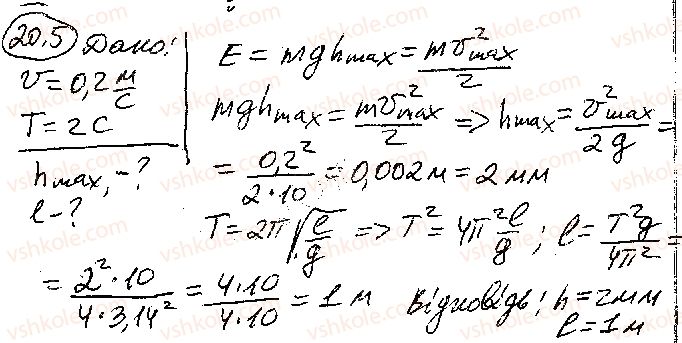 20.5 Дано:
v = 0,2 м/с
T = 2 с
hmax - ?
l - ?
E = mghmax = mv²max/2
mghmax = mv²max/2 => hmax = v²max/2g =
= 0,2²/2·10 = 0,002 м = 2 мм
T = 2π√(l/g) => T² = 4π² l/g ; l = T²g/4π² =
= 2²·10/4·3,14² = 4·10/4·10 = 1 м
Відповідь: h = 2 мм
l = 1 м
vshkole.com